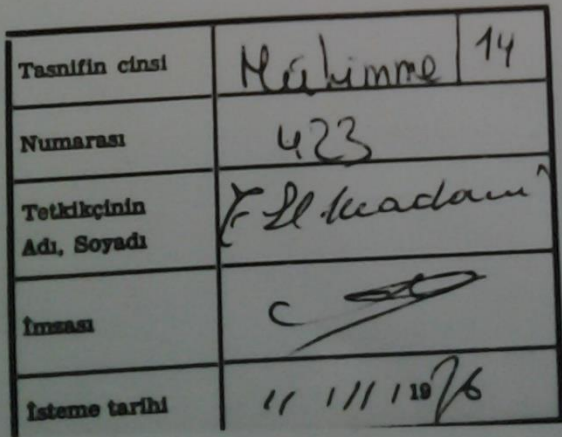 Tasnifin cinsi Mühimme 14
Numarası 423
Tetkikçinin
Adı, Soyadı
İmzası
İsteme tarihi 11 / 11 / 1976